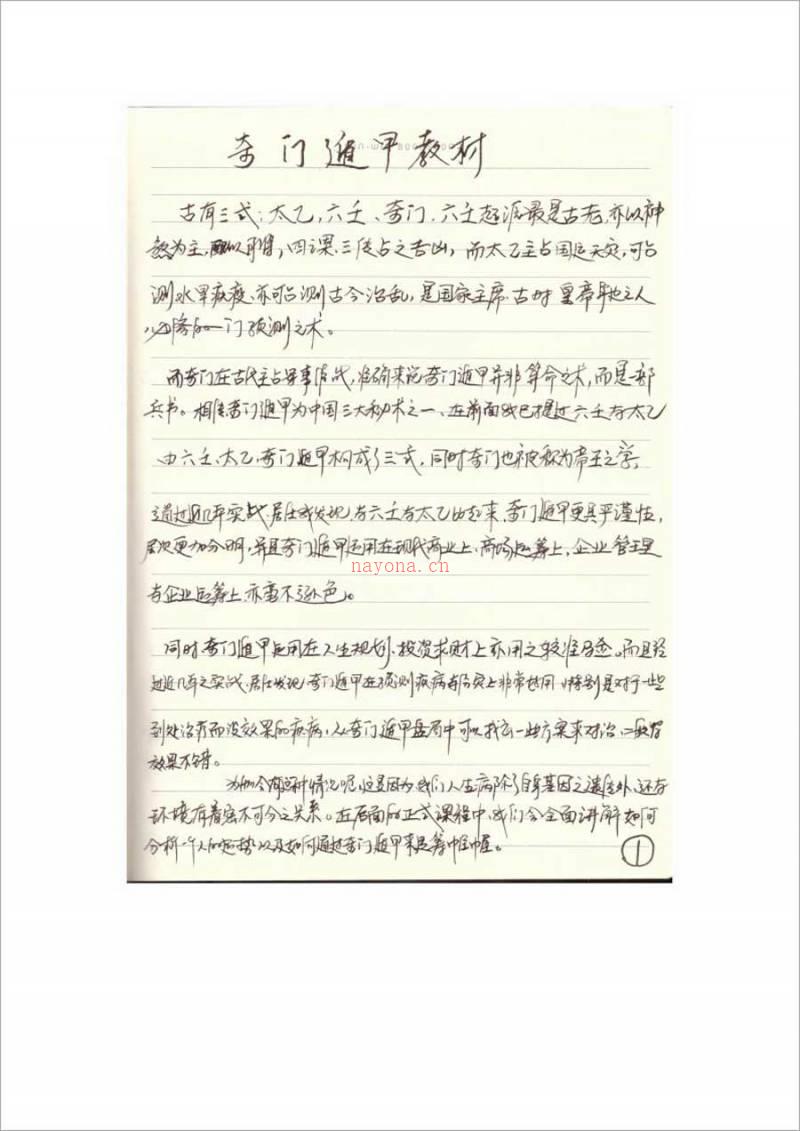 奇门遁甲教材
古有三式：太乙，六壬、奇门，六壬起源最是古老，亦以神
为主，四课、三传占之吉凶，而太乙主占国运天灾，可占
测水旱疾疫，亦可占测古今治乱，是国家主席、古时皇帝身边之人
必修的一门预测之术。
而奇门在古代主占军事作战，准确来说，奇门遁甲并非算命之术，而是一部
兵书。相传奇门遁甲为中国三大秘术之一、在前面我已提过六壬与太乙
由六壬、太乙、奇门遁甲构成了三式，同时奇门也被称为帝王之学，
通过近几年实战，居士我发现，与六壬与太乙比起来，奇门遁甲更具严谨性，
层次更加分明，并且奇门遁甲运用在现代商业上、商场运筹上、企业管理
与企业运筹上，亦毫不逊色。
nayona.cn
同时奇门遁甲运用在人生规划、投资求财上亦用之较准验。而且经
过近几年之实战，居士发现，奇门遁甲在预测疾病与方实上非常好用，特别是对于一些
到处治疗而没效果的疾病，从奇门遁甲盘局中可以找出一些方案来对治，
效果不错。
为何会有这种情况呢，这是因为，我们人生病除了自身基因之遗传外，还与
环境有着密不可分之关系。在后面的正式课程中，我们会全面讲解如何
分析一个人的运势以及如何通过奇门遁甲来运筹帷幄。
1